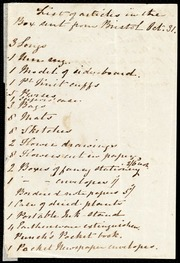 List of articles in the
Box sent from Bristol Oct. 31.
3 Songs
1
1 Model of sideboard.
1 Pr knit cuffs
5 Purses
7 Bags
8 Mats
8 Sketches
2 Flower drawings
8 Flowers cut in paper
2 Boxes of fancy stationery
1 - - envelopes
Bordered note papers
1 Case of dried plants
1 Portable Ink stand
4 Earthenware extinguishers
Punch's Pocket book.
1 Packet Newspaper envelopes.